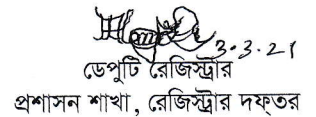 3.3.21
ডেপুটি রেজিস্ট্রার
প্রশাসন শাখা, রেজিস্ট্রার দফ্তর